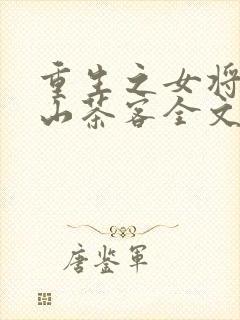 重生之女将
山茶客全文
唐鉴军